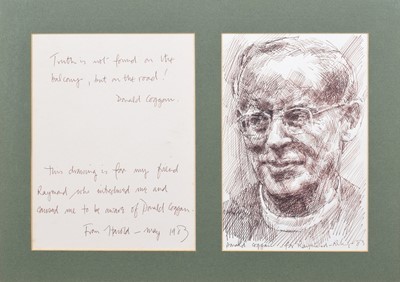 Truth is not found on the
balcony, but on the road!
Donald Coggan.
This drawing is for my friend
Raymond who entertained me and
caused me to be aware of Donald Coggan
From Harold - May 1983
Donald Coggan for Raymond